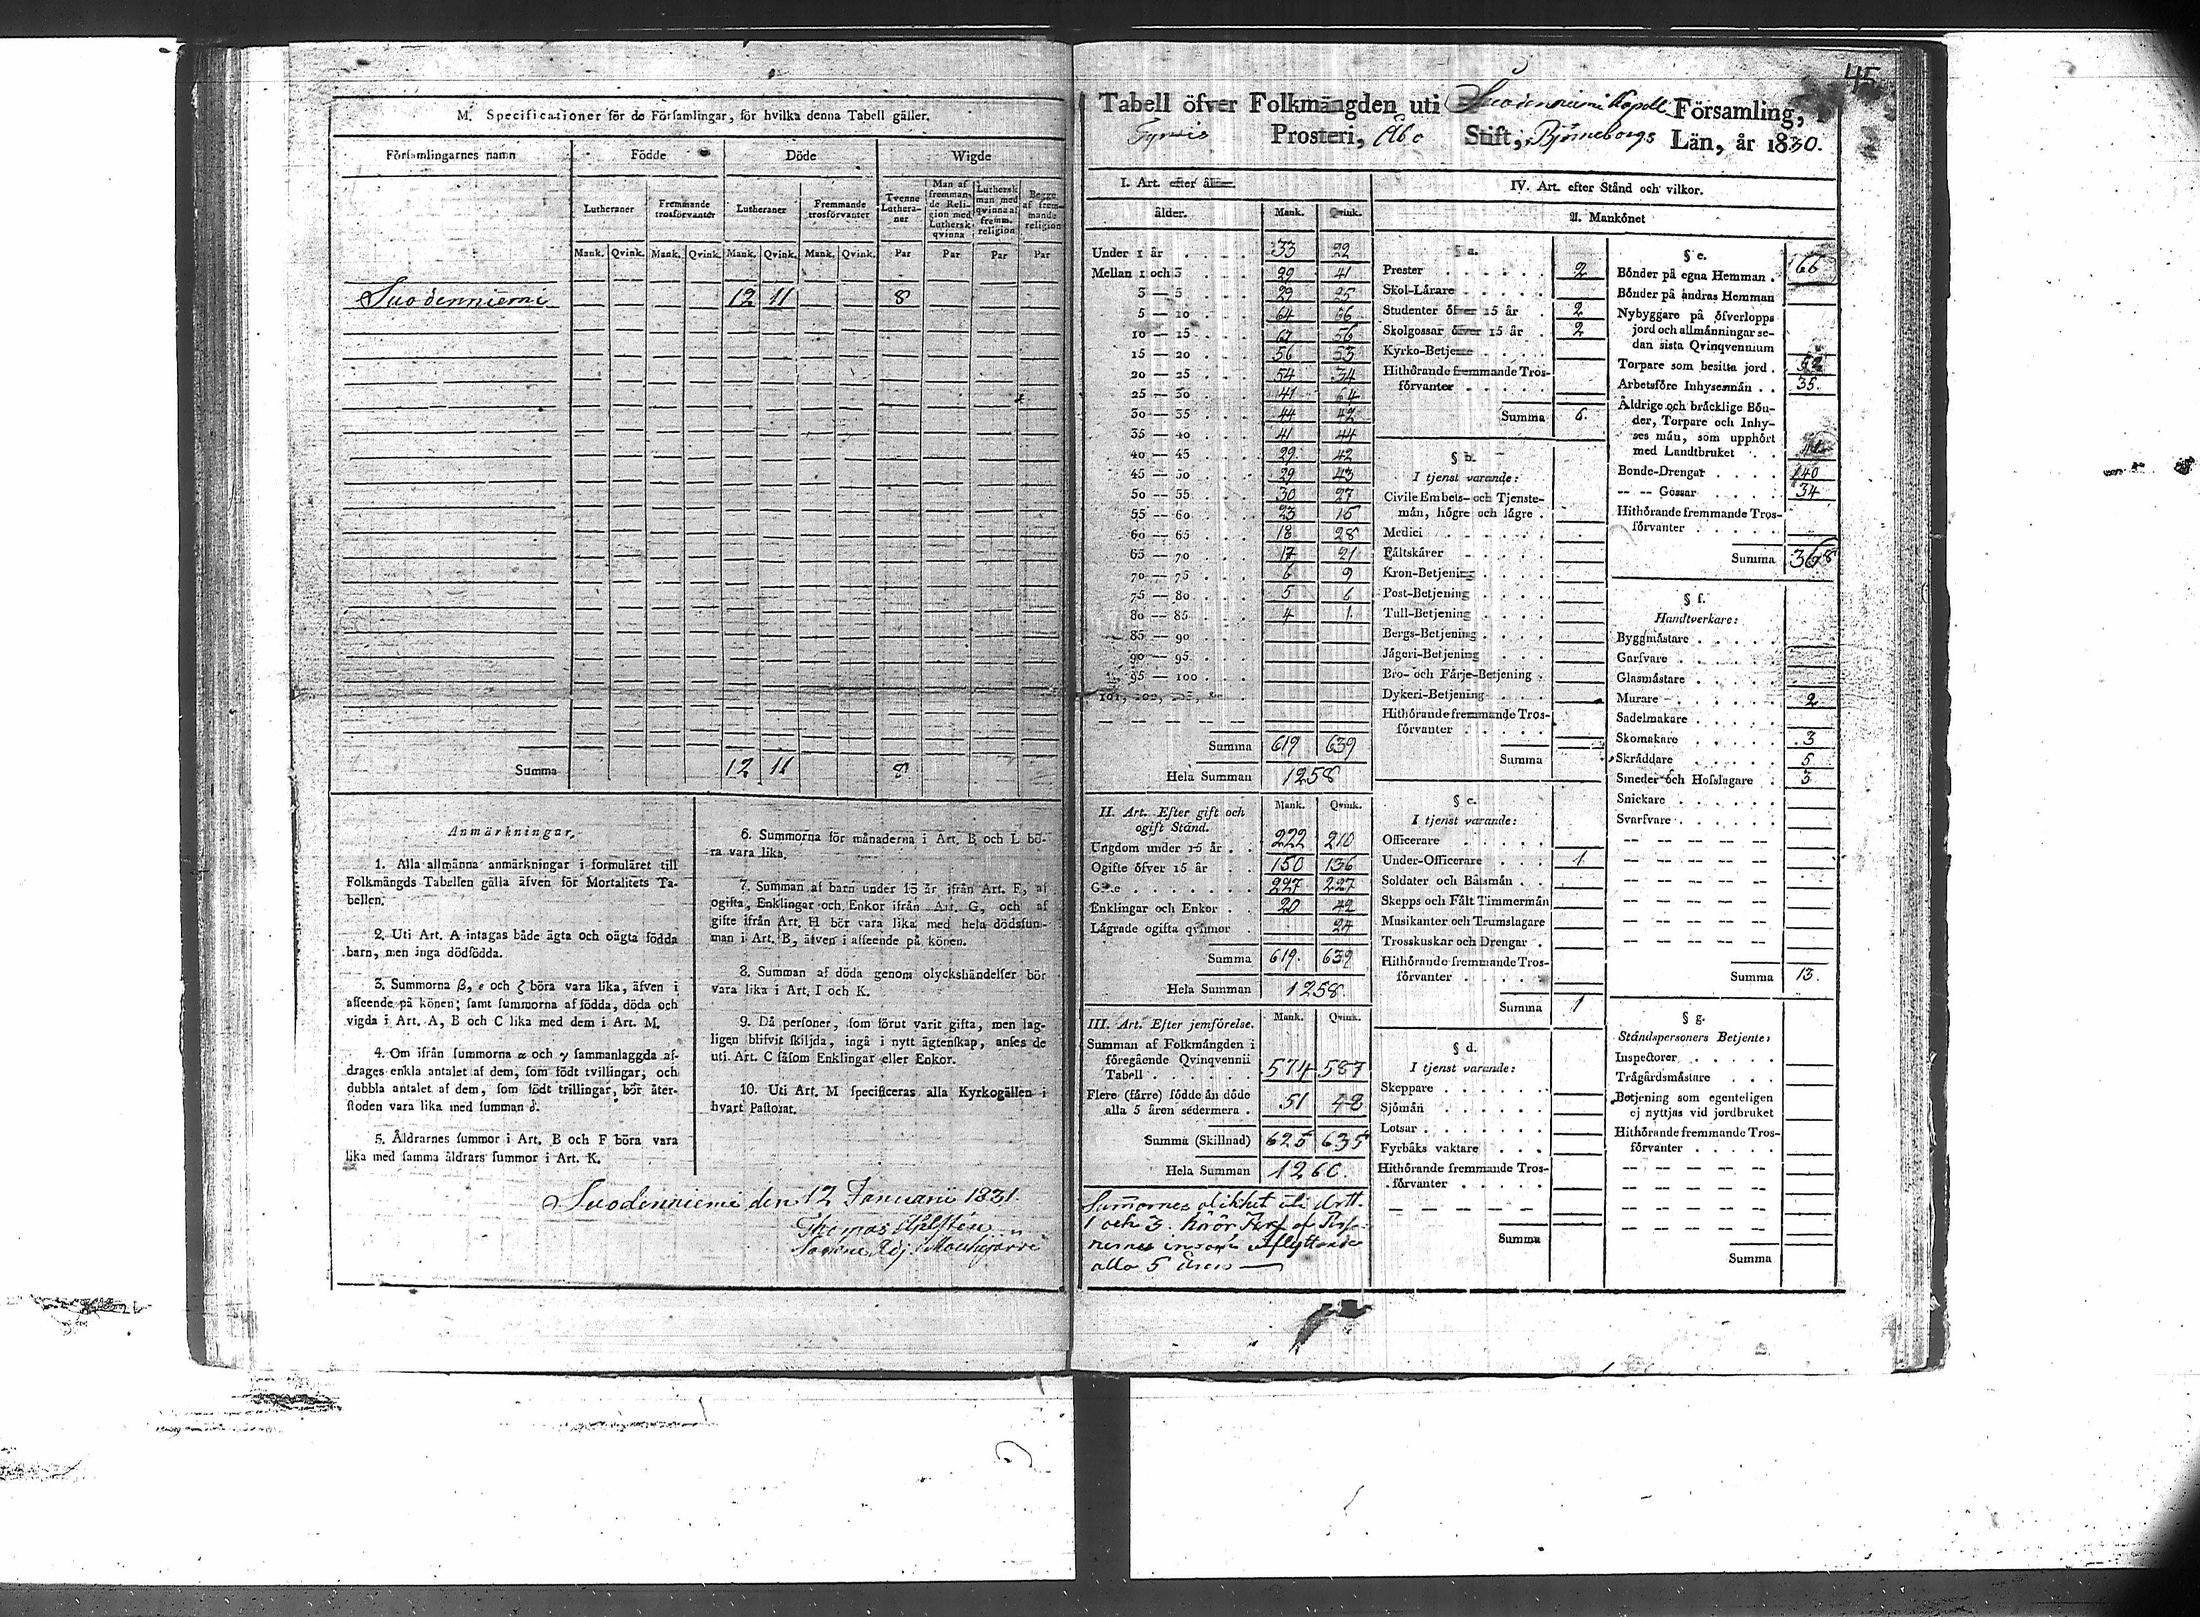 M. Specificationer för de Församlingar, för hvilka denna Tabell gäller.
Församlingarnes namn Födde Döde Wigde
Lutheraner Fremmande trosförvanter Lutheraner Fremmande trosförvanter Tvenne Lutheraner Man af fremmande Religion med Luthersk qvinna Luthersk man med qvinna af fremm. religion Begge af fremmande religion
Mank. Qvink. Mank. Qvink. Mank. Qvink. Mank. Qvink. Par Par Par Par
Suodenniemi — — — — 12 11 — — 8 — — —
Summa 12 11 8
Anmärkningar.
1. Alla allmänna anmärkningar i formuläret till
Folkmängds Tabellen gälla äfven för Mortalitets Ta-
bellen.
2. Uti Art. A intagas både ägta och oägta födda
barn, men inga dödfödda.
3. Summorna β, ε och ζ böra vara lika, äfven i
affeende på könen; samt summorna af födda, döda och
vigda i Art. A, B och C lika med dem i Art. M.
4. Om ifrån summorna α och γ sammanlaggda af-
drages enkla antalet af dem, som födt tvillingar, och
dubbla antalet af dem, som födt trillingar, bör åter-
stoden vara lika med summan δ.
5. Åldrarnes summor i Art. B och F böra vara
lika med samma åldrars summor i Art. K.
6. Summorna för månaderna i Art. B och L bö-
ra vara lika.
7. Summan af barn under 15 år ifrån Art. F, af
ogifta, Enklingar och Enkor ifrån Art. G, och af
gifte ifrån Art. H bör vara lika med hela dödssum-
man i Art. B, äfven i affeende på könen.
8. Summan af döda genom olyckshändelser bör
vara lika i Art. I och K.
9. Då personer, som förut varit gifta, men lag-
ligen blifvit skiljda, ingå i nytt ägtenskap, anses de
uti Art. C såsom Enklingar eller Enkor.
10. Uti Art. M specificeras alla Kyrkogällen i
hvart Pastorat.
Suodenniemi den 12 Januarii 1831.
Thomas
45
Tabell öfver Folkmängden uti Suodenniemi Kapell Församling,
Tyrvis Prosteri, Åbo Stift, Björneborgs Län, år 1830.
I. Art. efter ålder.
ålder. Mank. Qvink.
Under 1 år 33 22
Mellan 1 och 3 29 41
3 — 5 29 25
5 — 10 64 66
10 — 15 67 56
15 — 20 56 53
20 — 25 54 34
25 — 30 41 64
30 — 35 44 42
35 — 40 41 44
40 — 45 29 42
45 — 50 29 43
50 — 55 30 27
55 — 60 23 15
60 — 65 18 28
65 — 70 17 21
70 — 75 6 9
75 — 80 5 6
80 — 85 4 1
85 — 90
90 — 95
95 — 100
101, 102, 103, &c.
Summa 619 639
Hela Summan 1258
II. Art. Efter gift och ogift Stånd. Mank. Qvink.
Ungdom under 15 år 222 210
Ogifte öfver 15 år 150 136
Gifte 227 227
Enklingar och Enkor 20 42
Lägrade ogifta qvinnor 24
Summa 619. 639
Hela Summan 1258.
III. Art. Efter jemförelse. Mank. Qvink.
Summan af Folkmängden i
föregående Qvinqvennii
Tabell 574 587
Flere (färre) födde än döde
alla 5 åren sedermera 51 48
Summa (Skillnad) 625 635
Hela Summan 1260.
Summornes olikhet uti Artt.
1 och 3. härör
alla 5 åren
IV. Art. efter Stånd och vilkor.
A. Mankönet
§ a.
Prester 2
Skol-Lärare
Studenter öfver 15 år 2
Skolgossar öfver 15 år 2
Kyrko-Betjente
Hithörande fremmande Tros-
förvanter
Summa 6.
§ b.
I tjenst varande:
Civile Embets- och Tjenste-
män, högre och lägre
Medici
Fältskärer
Kron-Betjening
Post-Betjening
Tull-Betjening
Bergs-Betjening
Jägeri-Betjening
Bro- och Färje-Betjening
Dykeri-Betjening
Hithörande fremmande Tros-
förvanter
Summa
§ c.
I tjenst varande:
Officerare
Under-Officerare 1
Soldater och Båtsmän
Skepps och Fält Timmermän
Musikanter och Trumslagare
Trosskuskar och Drengar
Hithörande fremmande Tros-
förvanter
Summa 1
§ d.
I tjenst varande:
Skeppare
Sjömän
Lotsar
Fyrbåks vaktare
Hithörande fremmande Tros-
förvanter
Summa
§ e.
Bönder på egna Hemman 66
Bönder på andras Hemman
Nybyggare på öfverlopps
jord och allmänningar se-
dan sista Qvinqvennium
Torpare som besitta jord 52
Arbetsföre Inhysesmän 35.
Åldrige och bräcklige Bön-
der, Torpare och Inhy-
ses män, som upphört
med Landtbruket
Bonde-Drengar 140
— — Gossar 34
Hithörande fremmande Tros-
förvanter
Summa 368
§ f.
Handtverkare:
Byggmästare
Garfvare
Glasmästare
Murare 2
Sadelmakare
Skomakare 3
Skräddare 5
Smeder och Hofslagare 3
Snickare
Svarfvare
Summa 13.
§ g.
Ståndspersoners Betjente:
Inspector
Trägårdsmästare
Betjening som egenteligen
ej nyttjas vid jordbruket
Hithörande fremmande Tros-
förvanter
Summa